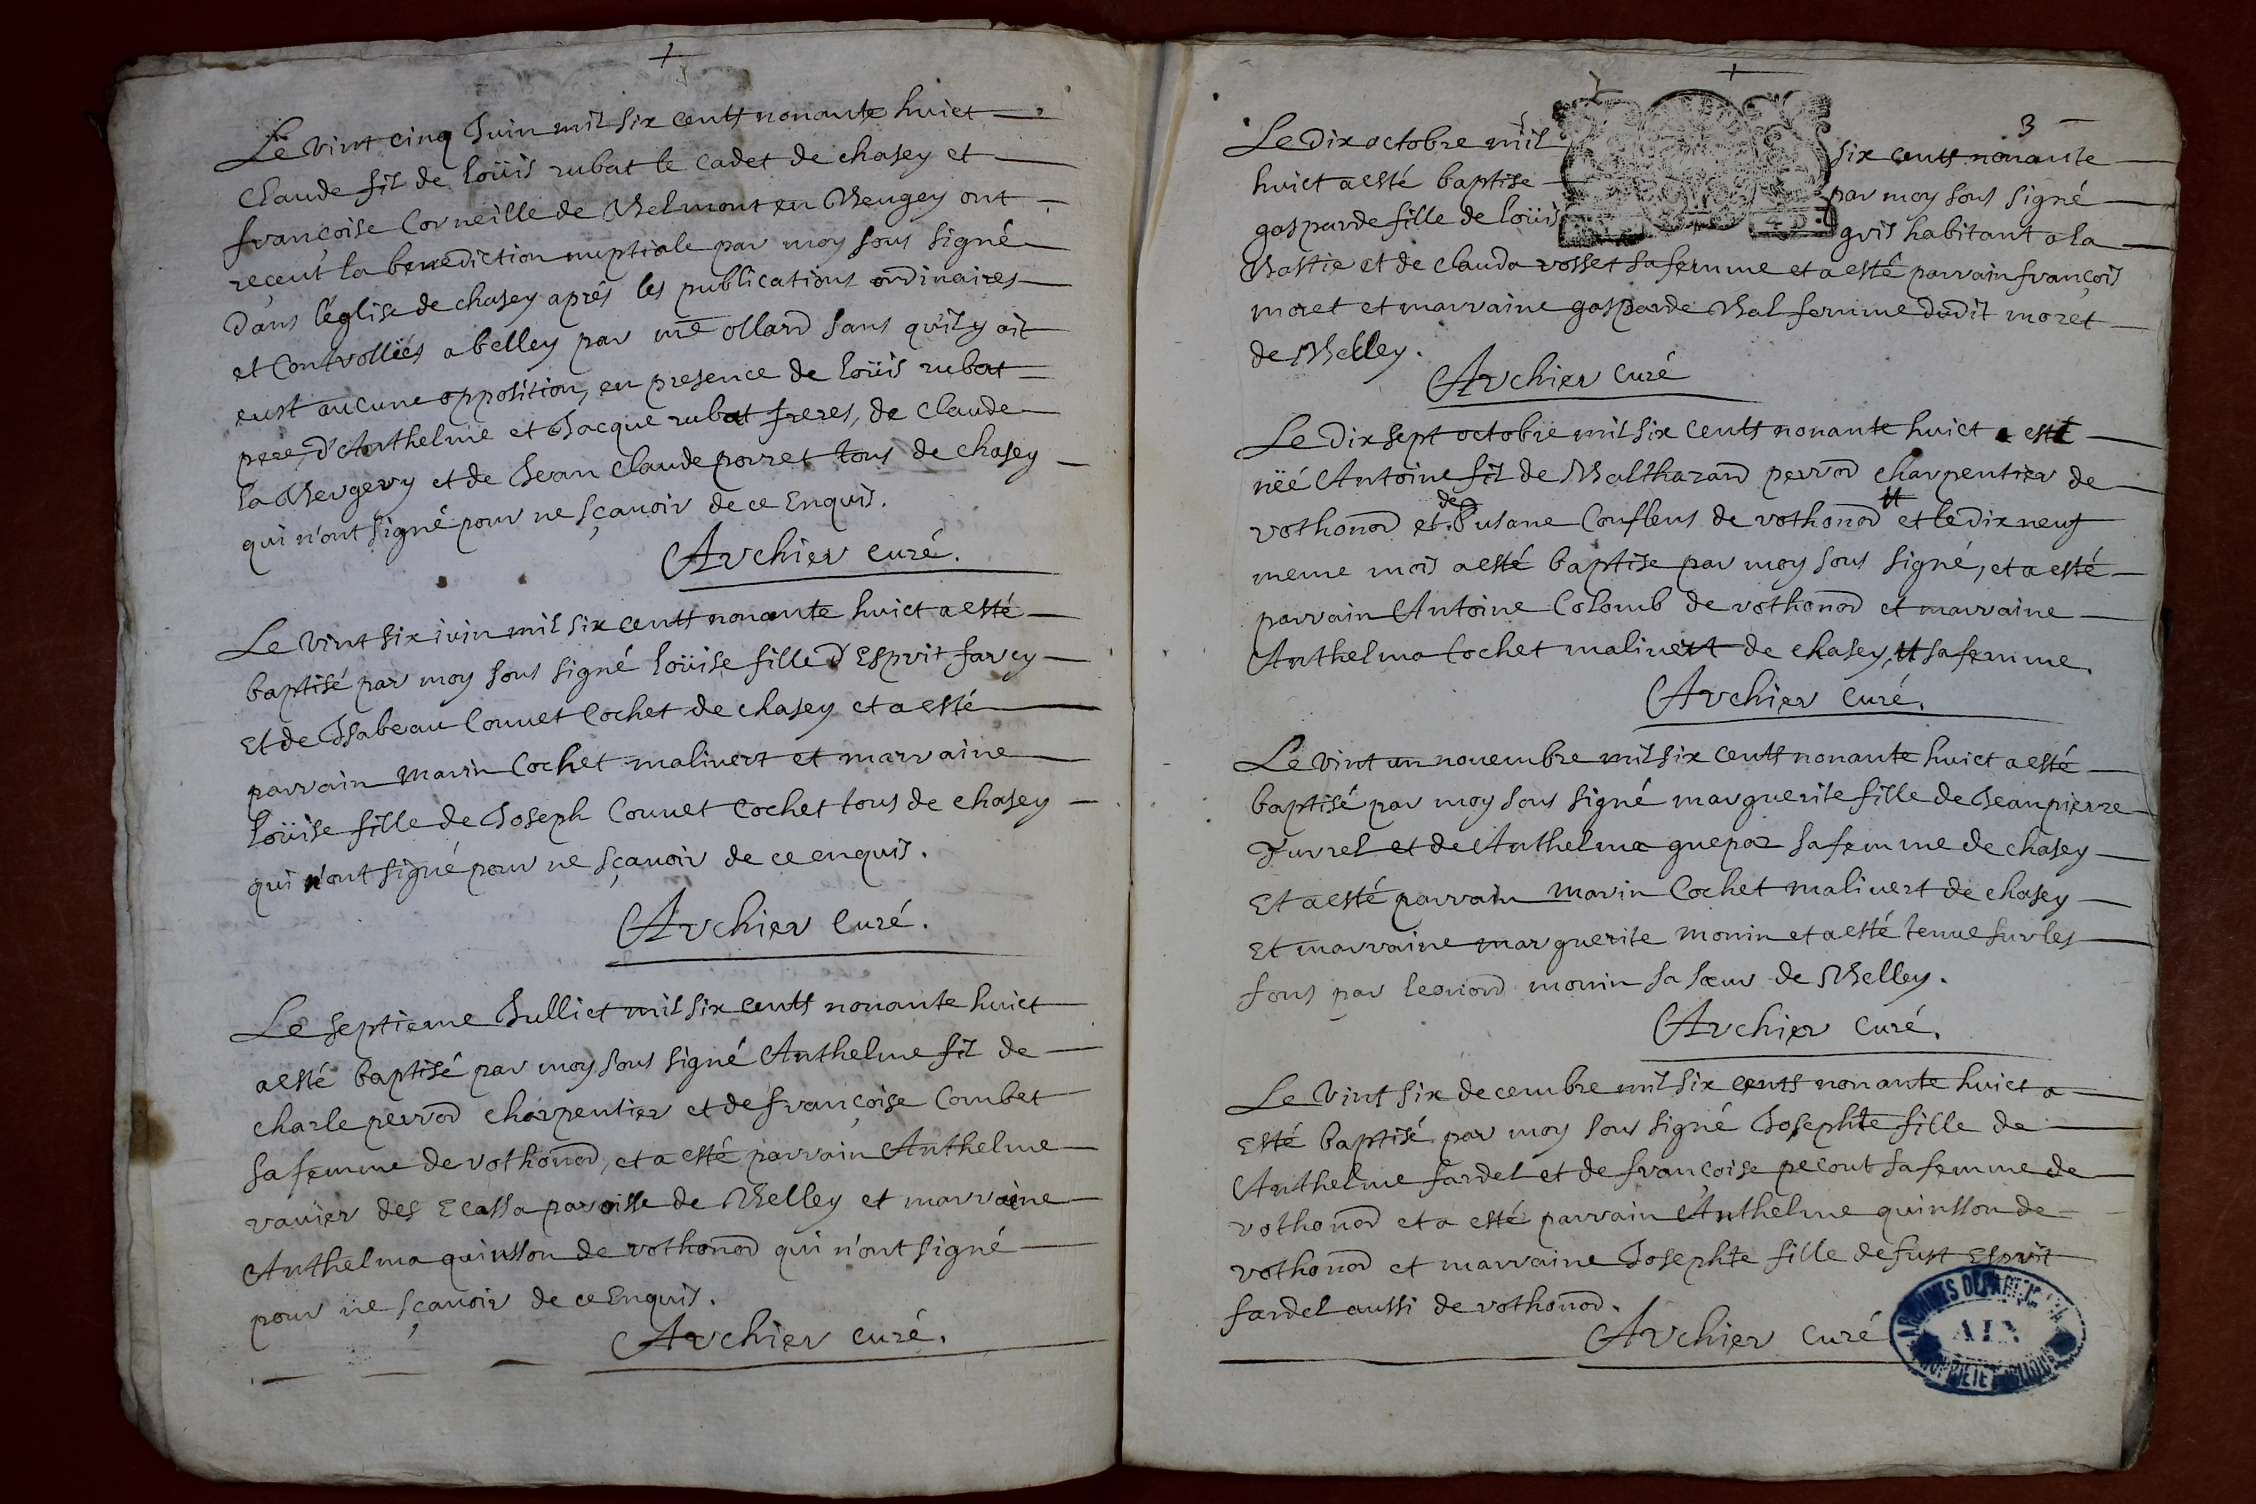 Le vint cinq Juin mil six cents nonante huict
Claude fil de loüis rubat le cadet de chasey et
françoise Corneille de Belmont en Beugey ont
reçeut la benediction nuptiale par moy sous signé
dans l'église de chasey aprés les publications ordinaires
et Controllëés a belley par me ollard sans qu'il y ait
eust aucune opposition, en presence de loüis rubat
pere, d'Anthelme et Jacque rubat freres, de claude
la Bergery et de Jean claude porret tous de chasey
qui n'ont signé pour ne sçavoir de ce Enquis.
Archier curé.
Le vint six iuin mil six cents nonante huict a esté
baptisé par moy sous signé loüise fille d'Esprit farcy
Et de Isabeau Couvet Cochet de chasey et a esté
parrain Marin Cochet malivert et marraine
loüise fille de Joseph Couvet Cochet tous de chasey
qui n'ont signé pour ne sçavoir de ce enquis.
Archier Curé.
Le septieme Julliet mil six cents nonante huict
a esté baptisé par moy sous signé Anthelme fil de
charle perrod charpentier et de françoise Combet
sa femme de vothonod, et a esté parrain Anthelme
ravier des Ecassa paroisse de Belley et marraine
Anthelma quinsson de vothonod qui n'ont signé
pour ne sçavoir de ce Enquis.
Archier curé.
3
Le Dix octobre mil six cents nonante
huict a esté baptise par moy sous signé
gasparde fille de loüis gris habitant a la
Bastie et de clauda rosset sa femme et a esté parrain françois
moret et marraine gasparde Bal femme dudit moret
de Belley.
Archier Curé
Le Dix sept octobre mil six cents nonante huict a esté
nëé Antoine fil de Balthazard perrod charpentier de
vothonod et de Susane Conflens de vothonod tt et le dix neuf
meme mois a esté baptise par moy sous signé, et a esté
parrain Antoine Colomb de vothonod et marraine
Anthelma Cochet malivert de chasey, tt sa femme.
Archier Curé.
Le vint un novembre mil six cents nonante huict a esté
baptisé par moy sous signé marguerite fille de Jean pierre
Jurrel et de Anthelma guepoz sa femme de chasey
Et a esté parrain Marin Cochet malivert de chasey
Et marraine marguerite Monin et a esté tenue sur les
fons par leonord monin sa sœur de Belley.
Archier Curé.
Le vint six decembre mil six cents nonante huict a
Esté baptisé par moy sous signé Josephte fille de
Anthelme fardel et de françoise peçout sa femme de
vothonod et a esté parrain Anthelme quinsson de
vothonod et marraine Josephte fille de fust Esprit
fardel aussi de vothonod.
Archier Curé
ARCHIVES DÉPARTEMENTALES
AIN
PROPRIÉTÉ PUBLIQUE